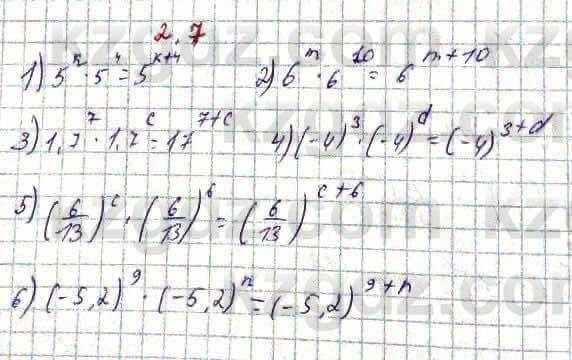 2.7
1) 5^k · 5^4 = 5^{k+4} 2) 6^m · 6^10 = 6^{m+10}
3) 1,7^7 · 1,7^c = 17^{7+c} 4) (-4)^3 · (-4)^d = (-4)^{3+d}
5) (6/13)^c · (6/13)^6 = (6/13)^{c+6}
6) (-5,2)^9 · (-5,2)^n = (-5,2)^{9+n}